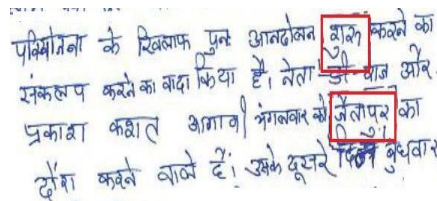 परियोजना के खिलाफ पुनः आनदोलन शुरू करने का
संकल्प करने का वादा किया है। नेता डी राज और
प्रकाश करात आगामी मंगलवार को जैतापुर का
दौरा करने वाले हैं। उसके दूसरे दिन बुधवार